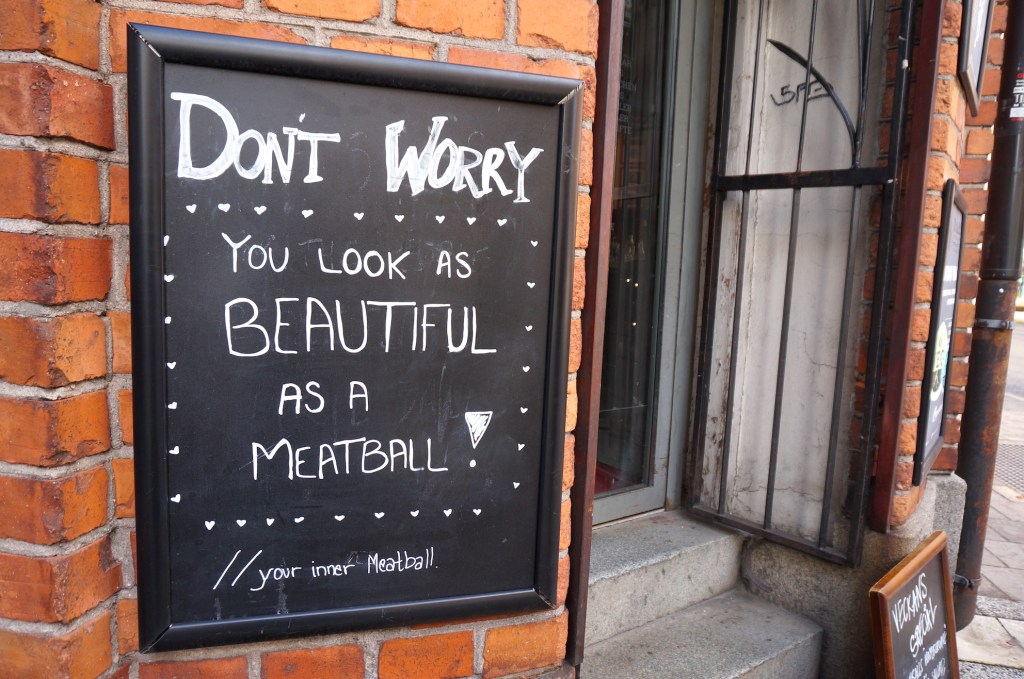 DON'T WORRY
YOU LOOK AS
BEAUTIFUL
AS A
MEATBALL!
//your inner Meatball.
VECKANS